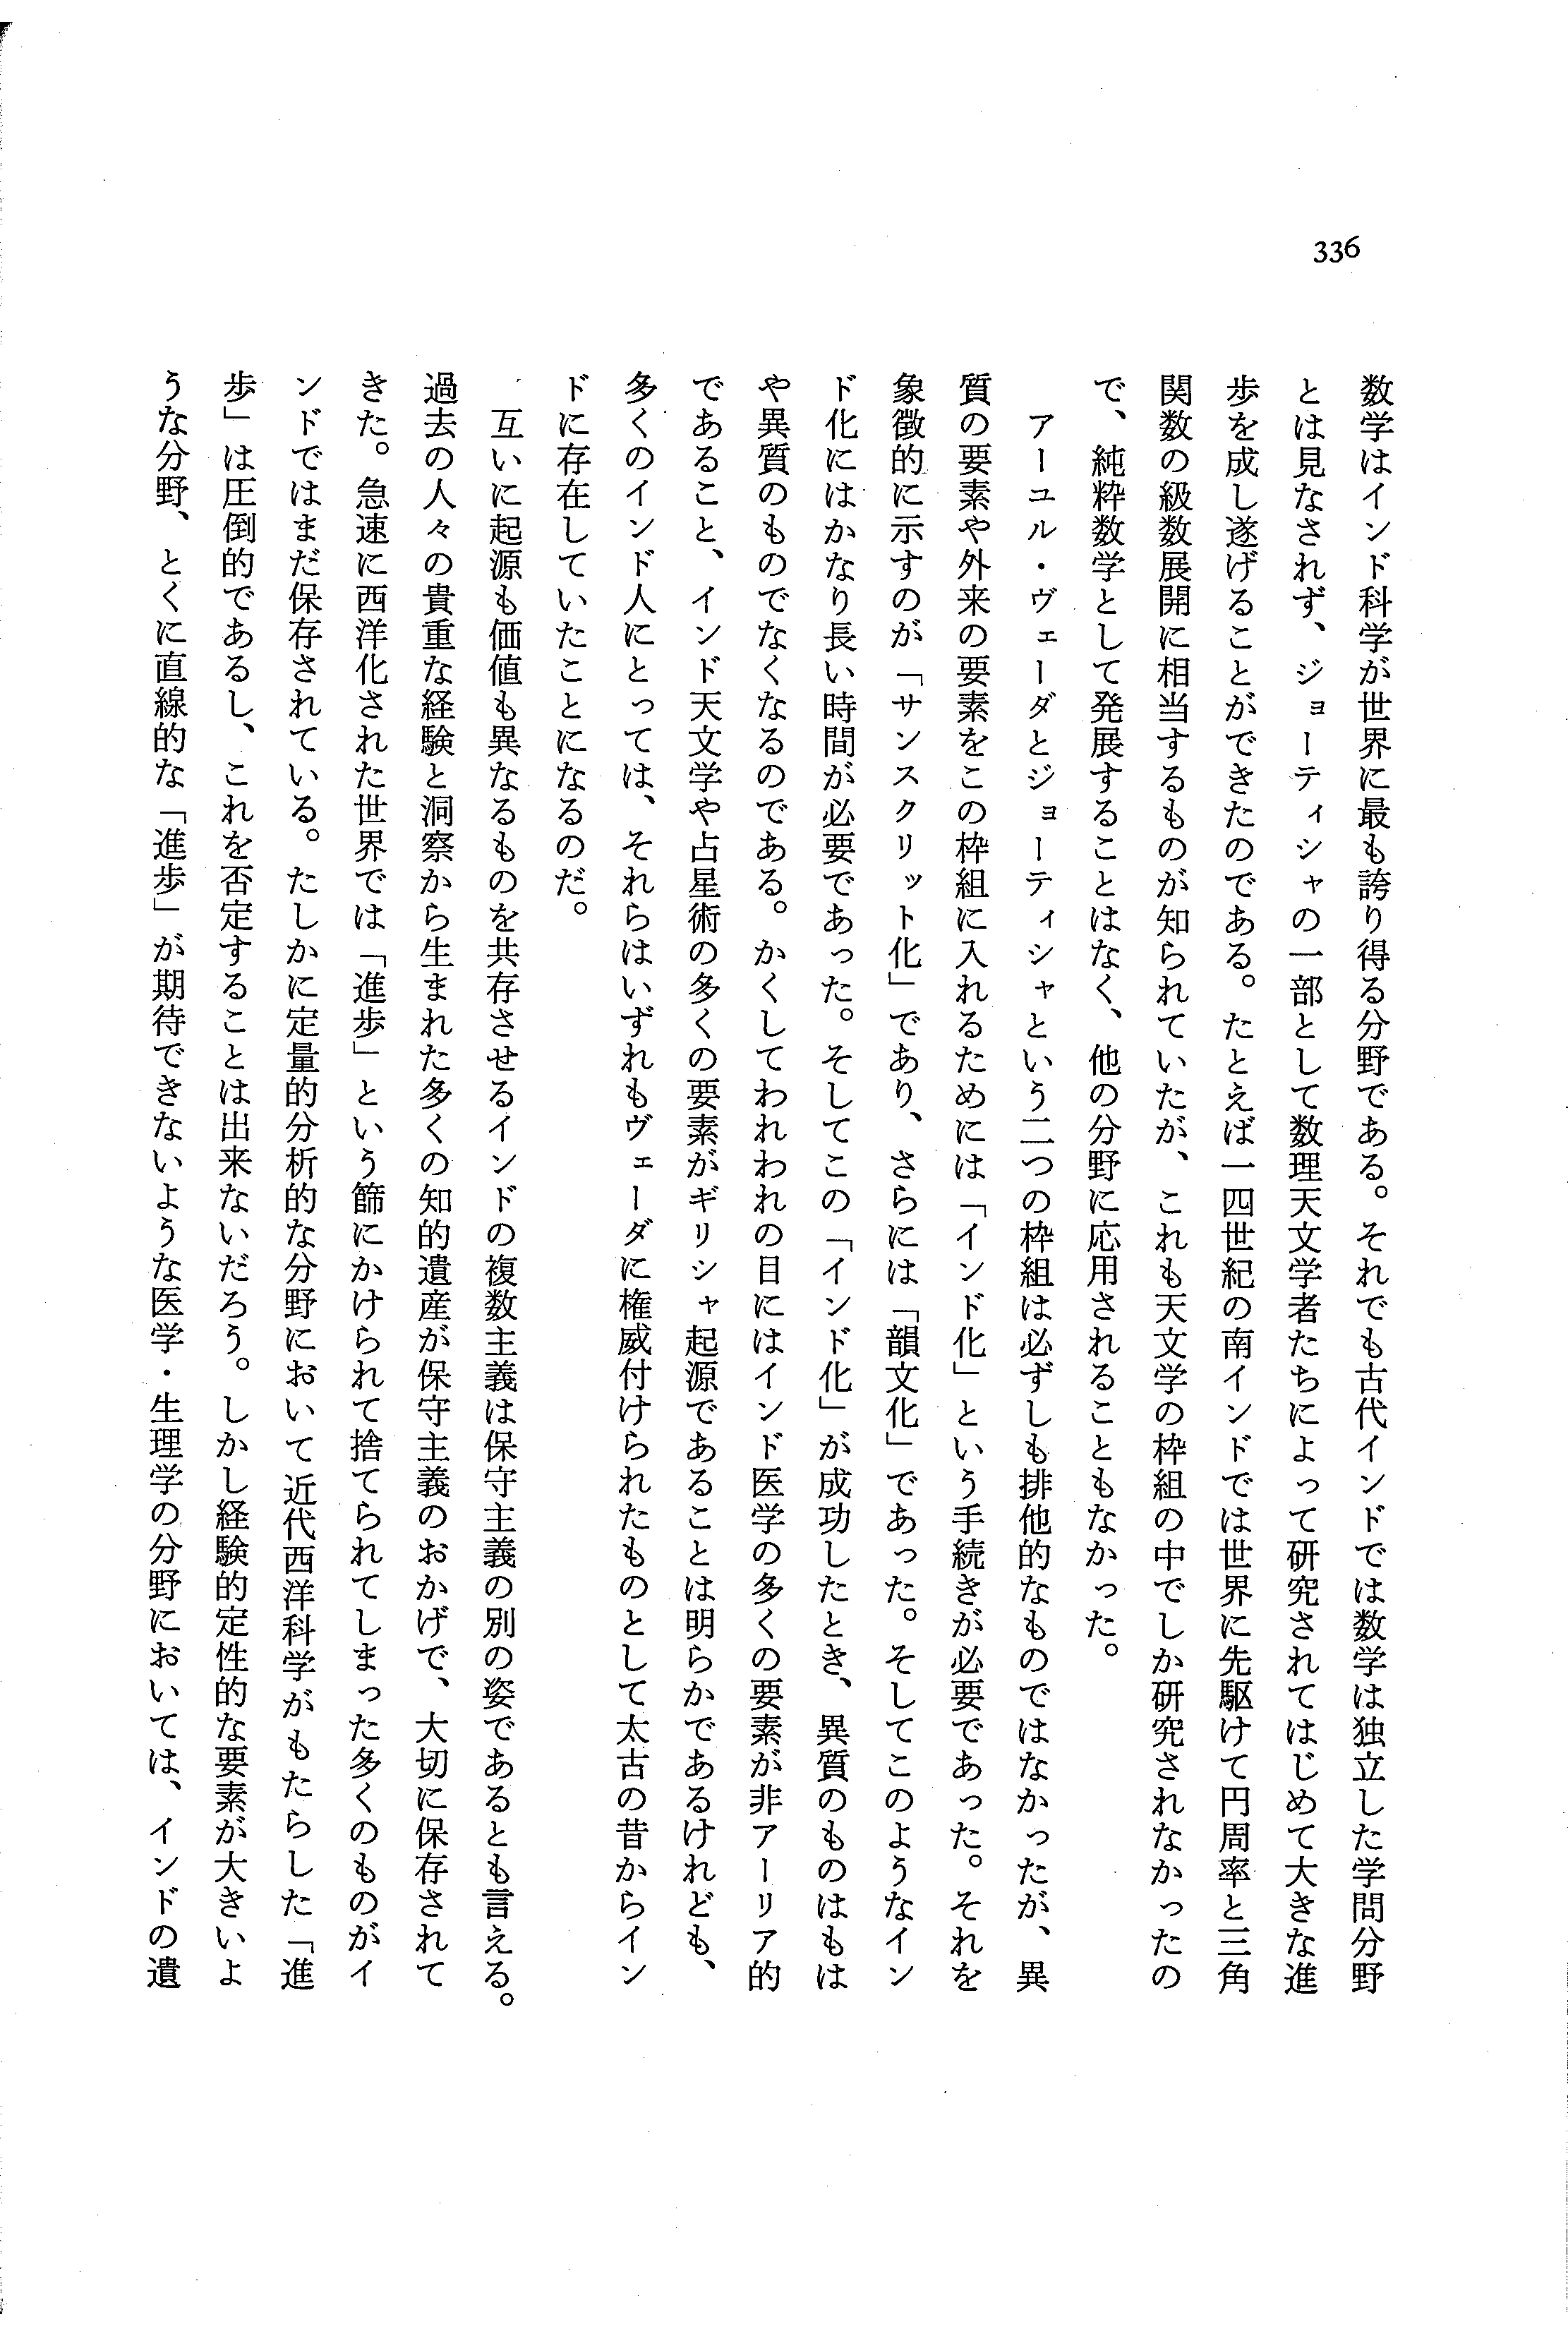 336
数学はインド科学が世界に最も誇り得る分野である。それでも古代インドでは数学は独立した学問分野
とは見なされず、ジョーティシャの一部として数理天文学者たちによって研究されてはじめて大きな進
歩を成し遂げることができたのである。たとえば一四世紀の南インドでは世界に先駆けて円周率と三角
関数の級数展開に相当するものが知られていたが、これも天文学の枠組の中でしか研究されなかったの
で、純粋数学として発展することはなく、他の分野に応用されることもなかった。
アーユル・ヴェーダとジョーティシャという二つの枠組は必ずしも排他的なものではなかったが、異
質の要素や外来の要素をこの枠組に入れるためには「インド化」という手続きが必要であった。それを
象徴的に示すのが「サンスクリット化」であり、さらには「韻文化」であった。そしてこのようなイン
ド化にはかなり長い時間が必要であった。そしてこの「インド化」が成功したとき、異質のものはもは
や異質のものでなくなるのである。かくしてわれわれの目にはインド医学の多くの要素が非アーリア的
であること、インド天文学や占星術の多くの要素がギリシャ起源であることは明らかであるけれども、
多くのインド人にとっては、それらはいずれもヴェーダに権威付けられたものとして太古の昔からイン
ドに存在していたことになるのだ。
互いに起源も価値も異なるものを共存させるインドの複数主義は保守主義の別の姿であるとも言える。
過去の人々の貴重な経験と洞察から生まれた多くの知的遺産が保守主義のおかげで、大切に保存されて
きた。急速に西洋化された世界では「進歩」という篩にかけられて捨てられてしまった多くのものがイ
ンドではまだ保存されている。たしかに定量的分析的な分野において近代西洋科学がもたらした「進
歩」は圧倒的であるし、これを否定することは出来ないだろう。しかし経験的定性的な要素が大きいよ
うな分野、とくに直線的な「進歩」が期待できないような医学・生理学の分野においては、インドの遺